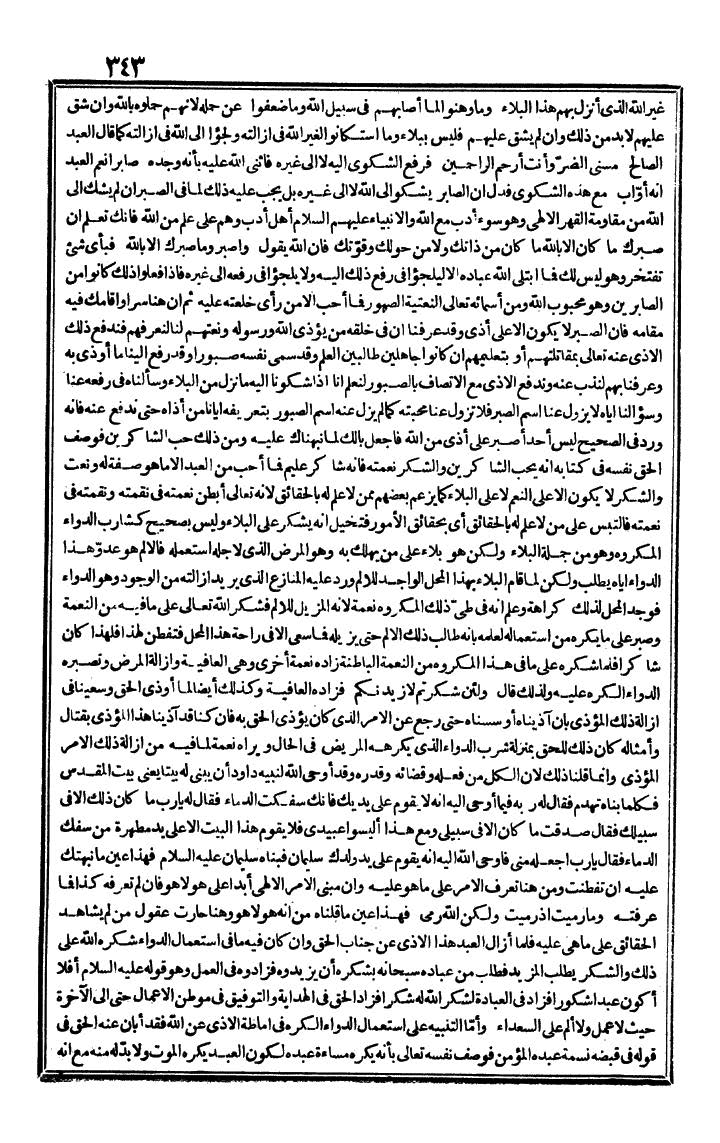 ٣٤٣
غير الله الذى أنزل بهم هذا البلاء وما وهنوا لما أصابهم فى سبيل الله وما ضعفوا عن حمله لانهم حملوه بالله وان شق
عليهم لا بد من ذلك وان لم يشق عليهم فليس ببلاء وما استكانوا لغير الله فى ازالته ولجؤا الى الله فى ازالته كما قال العبد
الصالح مسنى الضر وأنت أرحم الراحمين فرفع الشكوى اليه لا الى غيره فاثنى الله عليه بأنه وجده صابرا نعم العبد
انه أوّاب مع هذه الشكوى فدل ان الصابر يشكو الى الله لا الى غيره بل يجب عليه ذلك لما فى الصبر ان لم يشك الى
الله من مقاومة القهر الالهى وهو سوء أدب مع الله والانبياء عليهم السلام أهل أدب وهم على علم من الله فانك تعلم ان
صبرك ما كان الا بالله ما كان من ذاتك ولا من حولك وقوّتك فان الله يقول واصبر وما صبرك الا بالله فبأى شئ
تفتخر وهو ليس لك فما ابتلى الله عباده الا ليلجؤا فى رفع ذلك اليه ولا يلجؤا فى رفعه الى غيره فاذا فعلوا ذلك كانوا من
الصابرين وهو محبوب الله ومن أسمائه تعالى النعتية الصبور فما أحب الا من رأى خلعته عليه ثم ان هنا سرا وأقامك فيه
مقامه فان الصبر لا يكون الا على أذى وقد عرفنا ان فى خلقه من يؤذى الله ورسوله ونعتهم لنا لنعرفهم فندفع ذلك
الاذى عنه تعالى بمقاتلتهم أو بتعليمهم ان كانوا جاهلين طالبين العلم وقد سمى نفسه صبورا وقد رفع الينا ما أوذى به
وعرفنا بهم لنذب عنه وندفع الاذى مع الاتصاف بالصبور لنعلم انا اذا شكونا اليه ما نزل من البلاء وسألناه فى رفعه عنا
وسؤالنا اياه لا يزول عنا اسم الصبر فلا تزول عنا محبته كما لم يزل عنه اسم الصبور بتعريفه ايانا من أذاه حتى ندفع عنه فانه
ورد فى الصحيح ليس أحد أصبر على أذى من الله فاجعل بالك لما نبهناك عليه ومن ذلك حب الشاكرين فوصف
الحق نفسه فى كتابه انه يحب الشاكرين والشكر نعمته فانه شاكر عليم فما أحب من العبد الا ما هو صفة له ونعت
والشكر لا يكون الا على النعم لا على البلاء كما يزعم بعضهم ممن لا علم له بالحقائق لانه تعالى أبطن نعمته فى نقمته ونقمته فى
نعمته فالتبس على من لا علم له بالحقائق أى بحقائق الأمور فتخيل انه يشكر على البلاء وليس بصحيح كشارب الدواء
المكروه وهو من جملة البلاء ولكن هو بلاء على من يهلك به وهو المرض الذى لاجله استعمله فالالم هو عدوّ هذا
الدواء اياه يطلب ولكن لما قام البلاء بهذا المحل الواجد للالم ورد عليه المنازع الذى يريد ازالته من الوجود وهو الدواء
فوجد المحل لذلك كراهة وعلم انه فى طىّ ذلك المكروه نعمة لانه المزيل للالم فشكر الله تعالى على ما فيه من النعمة
وصبر على ما يكره من استعماله لعلمه بانه طالب ذلك الالم حتى يزيله فما سعى الا فى راحة هذا المحل فتفطن لهذا فلهذا كان
شاكرا فلما شكره على ما فى هذا المكروه من النعمة الباطنة زاده نعمة أخرى وهى العافية وازالة المرض وتصبره
الدواء الكره عليه ولذلك قال ولئن شكرتم لازيدنكم فزاده العافية وكذلك أيضا لما أوذى الحق وسعينا فى
ازالة ذلك المؤذى بان آذيناه أو سسناه حتى رجع عن الامر الذى كان يؤذى الحق به فان كنا قد آذينا هذا المؤذى بقتال
وأمثاله كان ذلك للحق بمنزلة شرب الدواء الذى يكرهه المريض فى الحال ويراه نعمة لما فيه من ازالة ذلك الامر
المؤذى وانما قلنا ذلك لان الكل من فعله وقضائه وقدره وقد أوحى الله لنبيه داود أن يبنى له بيتا يعنى بيت المقدس
فكلما بناه تهدم فقال له ربه فيما أوحى اليه انه لا يقوم على يديك فانك سفكت الدماء فقال له يارب ما كان ذلك الا فى
سبيلك فقال صدقت ما كان الا فى سبيلى ومع هذا أليسوا عبيدى فلا يقوم هذا البيت الا على يد مطهرة من سفك
الدماء فقال يارب اجعله منى فاوحى الله اليه انه يقوم على يد ولدك سليمان فبناه سليمان عليه السلام فهذا عين ما نبهتك
عليه ان تفطنت ومن هنا تعرف الامر على ما هو عليه وان مبنى الامر الالهى أبدا على هو لا هو فان لم تعرفه كذا فما
عرفته وما رميت اذ رميت ولكن الله رمى فهذا عين ما قلناه من انه هو لا هو وهنا حارت عقول من لم يشاهد
الحقائق على ما هى عليه فلما أزال العبد هذا الاذى عن جناب الحق وان كان فيه ما فى استعمال الدواء شكره الله على
ذلك والشكر يطلب المزيد فطلب من عباده سبحانه بشكره أن يزيدوه فزادوه فى العمل وهو قوله عليه السلام أفلا
أكون عبدا شكورا فزاد فى العبادة لشكر الله له شكرا فزاد الحق فى الهداية والتوفيق فى موطن الاعمال حتى الى الآخرة
حيث لا عمل ولا ألم على السعداء وأمّا التنبيه على استعمال الدواء الكره فى اماطة الاذى عن الله فقد أبان عنه الحق فى
قوله فى قبضه نسمة عبده المؤمن فوصف نفسه تعالى بأنه يكره مساءة عبده لكون العبد يكره الموت ولا بدّ له منه مع انه